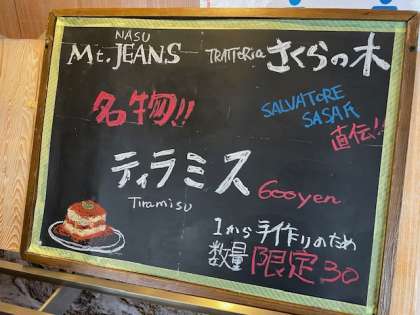 NASU
Mt. JEANS TRATTORia さくらの木
名物!!
SALVATORE
SASA氏
直伝!!
ティラミス 600yen
Tiramisu
1から手作りのため
数量限定30